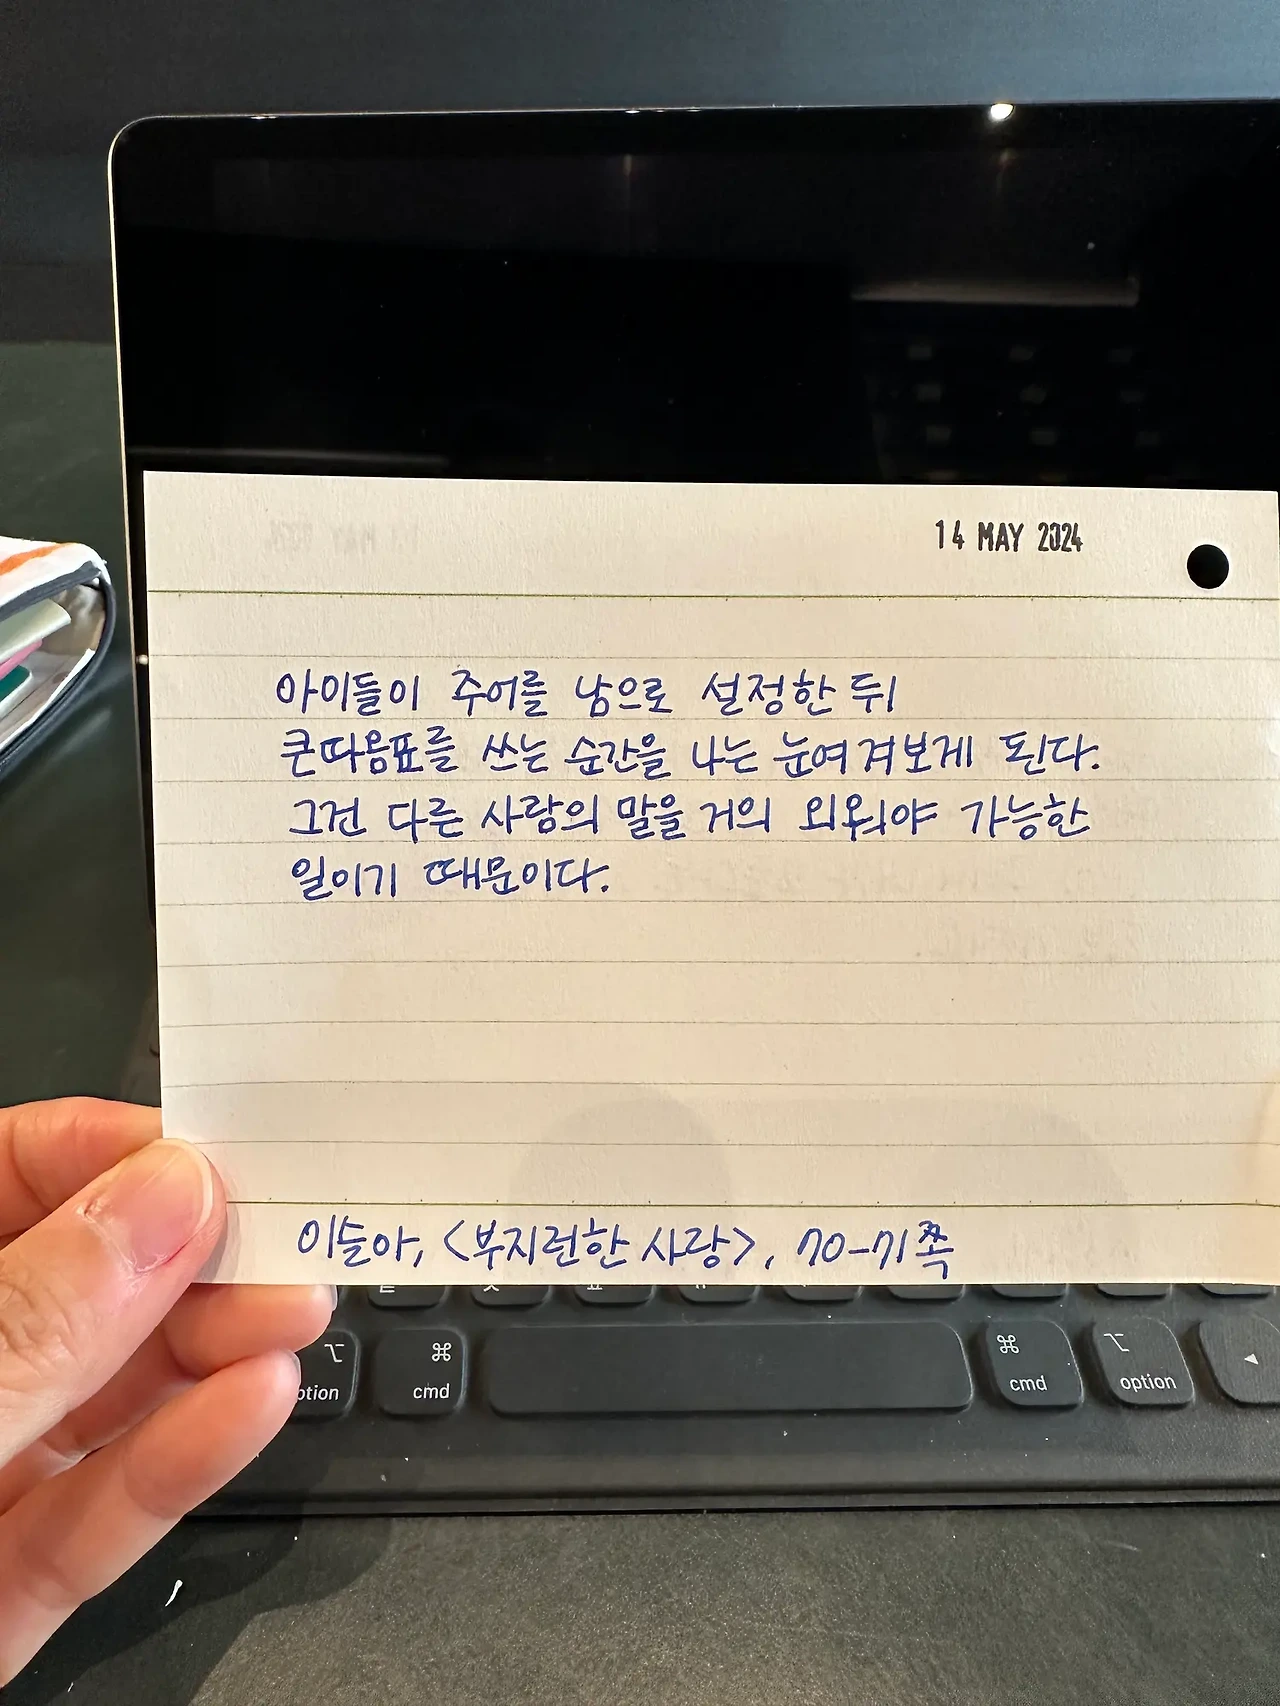 14 MAY 2024
아이들이 주어를 남으로 설정한 뒤
큰따옴표를 쓰는 순간을 나는 눈여겨보게 된다.
그건 다른 사람의 말을 거의 외워야 가능한
일이기 때문이다.
이슬아, <부지런한 사랑>, 70-71쪽
⌥ ⌘ ⌘ ⌥
cmd cmd option